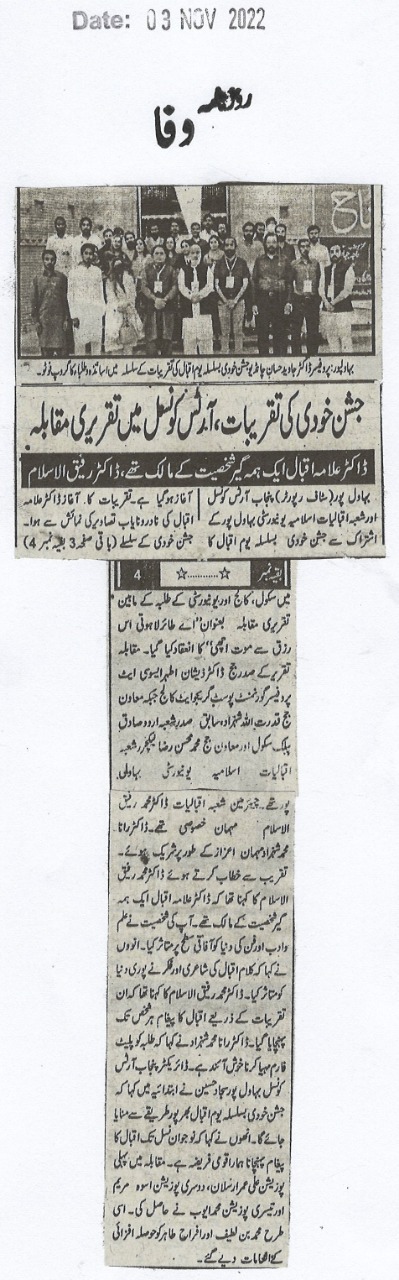 Date: 03 NOV 2022
روزنامہ
وفا
بہاولپور: پروفیسر ڈاکٹر جاوید حسان چانڈیو جشن خودی بسلسلہ یوم اقبال کی تقریبات کے سلسلہ میں اساتذہ و طلباء کا گروپ فوٹو۔
جشن خودی کی تقریبات، آرٹس کونسل میں تقریری مقابلہ
ڈاکٹر علامہ اقبال ایک ہمہ گیر شخصیت کے مالک تھے، ڈاکٹر رفیق الاسلام
بہاول پور (سٹاف رپورٹر) پنجاب آرٹس کونسل
اور شعبہ اقبالیات اسلامیہ یونیورسٹی بہاول پور کے
اشتراک سے جشن خودی بسلسلہ یوم اقبال کا
آغاز ہو گیا ہے۔ تقریبات کا آغاز ڈاکٹر علامہ
اقبال کی نادر و نایاب تصاویر کی نمائش سے ہوا۔
جشن خودی کے سلسلے (باقی صفحہ 3 بقیہ نمبر 4)
بقیہ نمبر ☆............☆ 4
میں سکول، کالج اور یونیورسٹی کے طلبہ کے مابین
تقریری مقابلہ بعنوان "اے طائر لاہوتی اس
رزق سے موت اچھی" کا انعقاد کیا گیا۔ مقابلہ
تقریر کے صدر جج ڈاکٹر ذیشان اطہر ایسوسی ایٹ
پروفیسر گورنمنٹ پوسٹ گریجوایٹ کالج جبکہ معاون
جج قدرت اللہ شہزاد سابق صدر شعبہ اردو صادق
پبلک سکول اور معاون جج محمد محسن رضا لیکچرر شعبہ
اقبالیات اسلامیہ یونیورسٹی بہاول
پور تھے۔ چیئرمین شعبہ اقبالیات ڈاکٹر محمد رفیق
الاسلام مہمان خصوصی تھے۔ ڈاکٹر رانا
محمد شہزاد مہمان اعزاز کے طور پر شریک ہوئے۔
تقریب سے خطاب کرتے ہوئے ڈاکٹر محمد رفیق
الاسلام کا کہنا تھا کہ ڈاکٹر علامہ اقبال ایک ہمہ
گیر شخصیت کے مالک تھے۔ آپ کی شخصیت نے علم
و ادب اور فن کی دنیا کو آفاقی سطح پر متاثر کیا۔ انہوں
نے کہا کہ کلام اقبال کی شاعری اور فکر نے پوری دنیا
کو متاثر کیا۔ ڈاکٹر محمد رفیق الاسلام کا کہنا تھا کہ ان
تقریبات کے ذریعے اقبال کا پیغام ہر شخص تک
پہنچایا گیا۔ ڈاکٹر رانا محمد شہزاد نے کہا کہ طلبہ کو پلیٹ
فارم مہیا کرنا خوش آئند ہے۔ ڈائریکٹر پنجاب آرٹس
کونسل بہاول پور سجاد حسین نے ابتدائیہ میں کہا کہ
جشن خودی بسلسلہ یوم اقبال بھرپور طریقے سے منایا
جائے گا۔ انھوں نے کہا کہ نوجوان نسل تک اقبال کا
پیغام پہنچانا ہمارا قومی فریضہ ہے۔ مقابلہ میں پہلی
پوزیشن علی عمار ارسلان، دوسری پوزیشن اسوہ مریم
اور تیسری پوزیشن محمد ایوب نے حاصل کی۔ اسی
طرح محمد بن لطیف اور افراح طاہر کو حوصلہ افزائی
کے انعامات دیے گئے۔